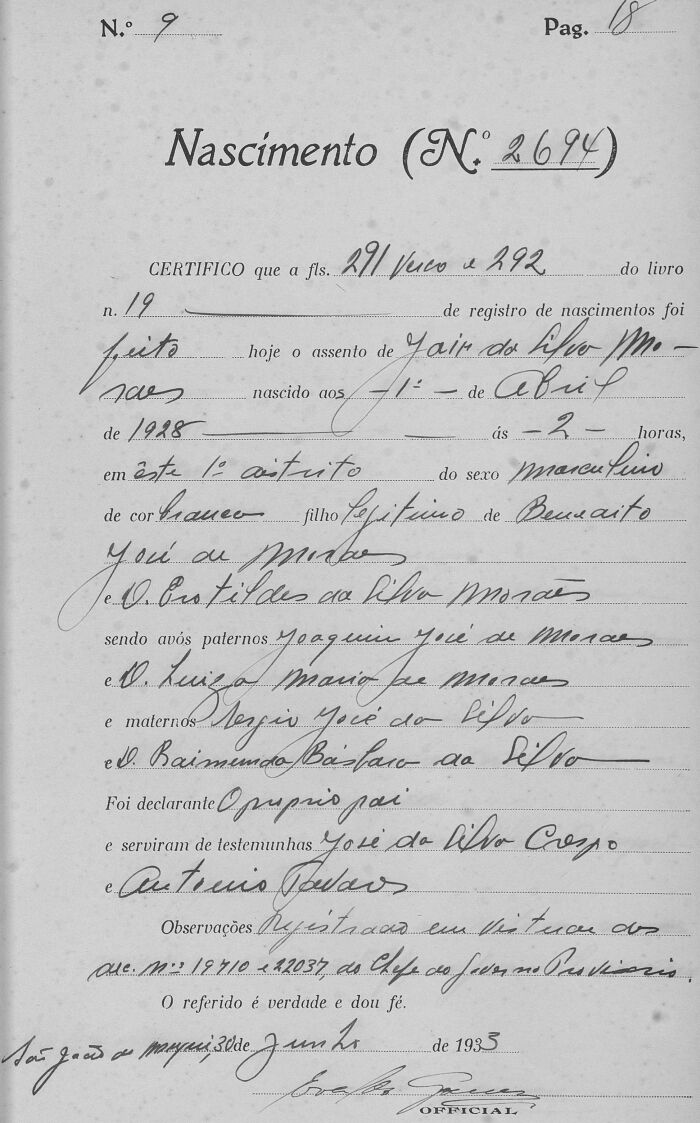 N.º 9 Pag. 18
Nascimento (N.º 2694)
CERTIFICO que a fls. 291 verso e 292 do livro
n. 19 de registro de nascimentos foi
feito hoje o assento de Jair da Silva Mo-
raes nascido aos -1º- de Abril
de 1928 ás -2- horas,
em êste 1º distrito do sexo masculino
de cor branca filho legitimo de Benedito
José de Moraes
e D. Erotildes da Silva Moraes
sendo avós paternos Joaquim José de Moraes
e D. Luiza Maria de Moraes
e maternos Sergio José da Silva
e D. Raimunda Bárbara da Silva
Foi declarante O proprio pai
e serviram de testemunhas José da Silva Crespo
e Antonio Tavares
Observações Registrado em virtude dos
dec. nºs 19710 e 22037, do Chefe do Governo Provisorio.
O referido é verdade e dou fé.
São João de 30 de Junho de 1933
OFFICIAL